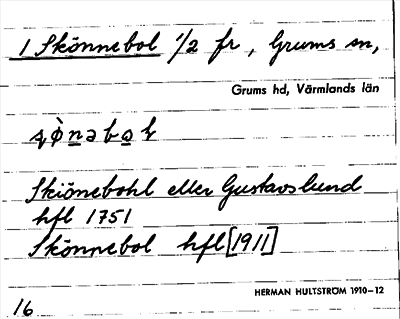 1 Skönnebol 1/2 fr, Grums sn,
Grums hd, Värmlands län
Skiönebohl eller Gustavslund
hfl 1751
Skönnebol hfl [1911]
HERMAN HULTSTRÖM 1910-12
16